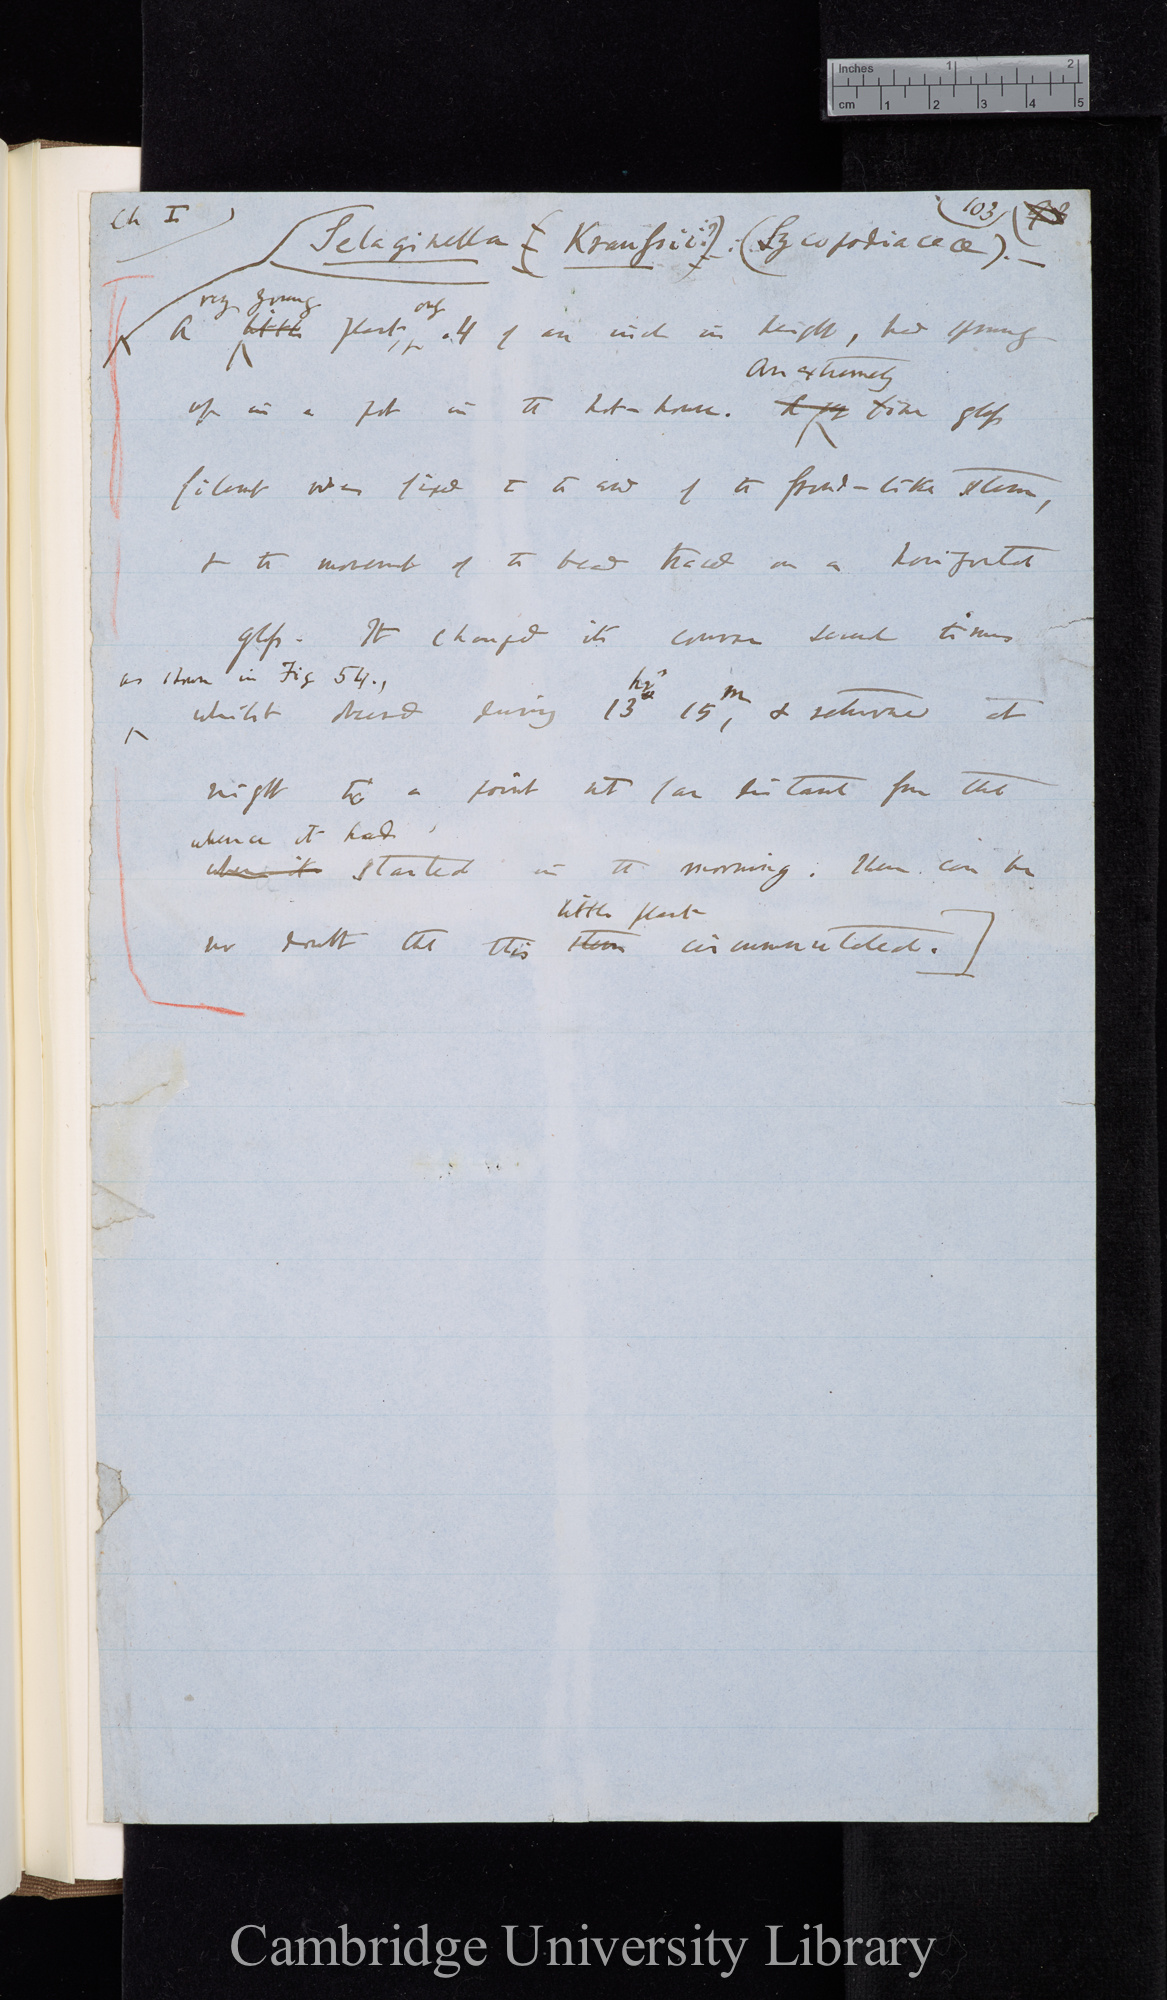 Inches 1 2
cm 1 2 3 4 5
Ch I
103
Selaginella (Kraussii?). (Lycopodiaceæ).—
very young only
A little plant, .4 of an inch in height, had sprung
An extremely
up in a pot in the hot-house. fine glass
filament was fixed to the end of the frond-like stem,
& the movement of the bead traced on a horizontal
glass. It changed its course several times
as shown in Fig 54.,
hrs m
whilst observed during 13 15, & returned at
night to a point not far distant from that
whence it had
when it started in the morning. There can be
little plant
no doubt that this stem circumnutated.]
Cambridge University Library